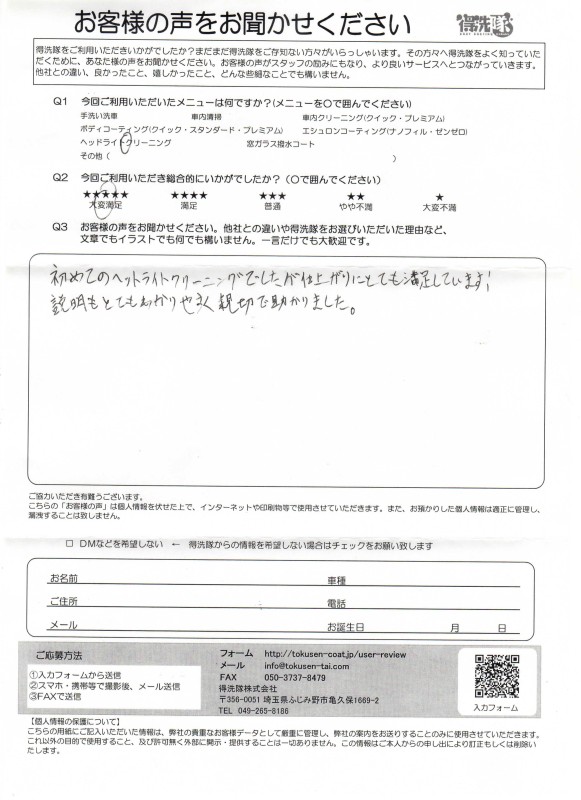 お客様の声をお聞かせください
得洗隊
得洗隊をご利用いただきいかがでしたか？まだまだ得洗隊をご存知ない方々がいらっしゃいます。その方々へ得洗隊をよく知っていた
だくために、あなた様の声をお聞かせください。お客様の声がスタッフの励みにもなり、より良いサービスへとつながっていきます。
他社との違い、良かったこと、嬉しかったこと、どんな些細なことでも構いません。
Q1 今回ご利用いただいたメニューは何ですか？(メニューを〇で囲んでください)
手洗い洗車 車内清掃 車内クリーニング(クイック・プレミアム)
ボディコーティング(クイック・スタンダード・プレミアム) エシュロンコーティング(ナノフィル・ゼンゼロ)
ヘッドライトクリーニング 窓ガラス撥水コート
その他（ ）
Q2 今回ご利用いただき総合的にいかがでしたか？（〇で囲んでください）
★★★★★ ★★★★ ★★★ ★★ ★
大変満足 満足 普通 やや不満 大変不満
Q3 お客様の声をお聞かせください。他社との違いや得洗隊をお選びいただいた理由など、
文章でもイラストでも何でも構いません。一言だけでも大歓迎です。
初めてのヘットライトクリーニングでしたが仕上がりにとても満足しています!
説明もとてもわかりやすく親切で助かりました。
ご協力いただき有難うございます。
こちらの「お客様の声」は個人情報を伏せた上で、インターネットや印刷物等で使用させていただきます。また、お預かりした個人情報は適正に管理し、
漏洩することは致しません。
□ DMなどを希望しない ← 得洗隊からの情報を希望しない場合はチェックをお願い致します
お名前 車種
ご住所 電話
メール お誕生日 月 日
ご応募方法
①入力フォームから送信
②スマホ・携帯等で撮影後、メール送信
③FAXで送信
フォーム http://tokusen-coat.jp/user-review
メール info@tokusen-tai.com
FAX 050-3737-8479
得洗隊株式会社
〒356-0051 埼玉県ふじみ野市亀久保1669-2
TEL 049-265-8186
入力フォーム
【個人情報の保護について】
こちらの用紙にご記入いただいた情報は、弊社の貴重なお客様データとして厳重に管理し、弊社の案内をお送りすることのみに使用させていただきます。
これ以外の目的で使用すること、及び許可無く外部に開示・提供することは一切ありません。この情報はご本人からの申し出により訂正もしくは削除い
たします。